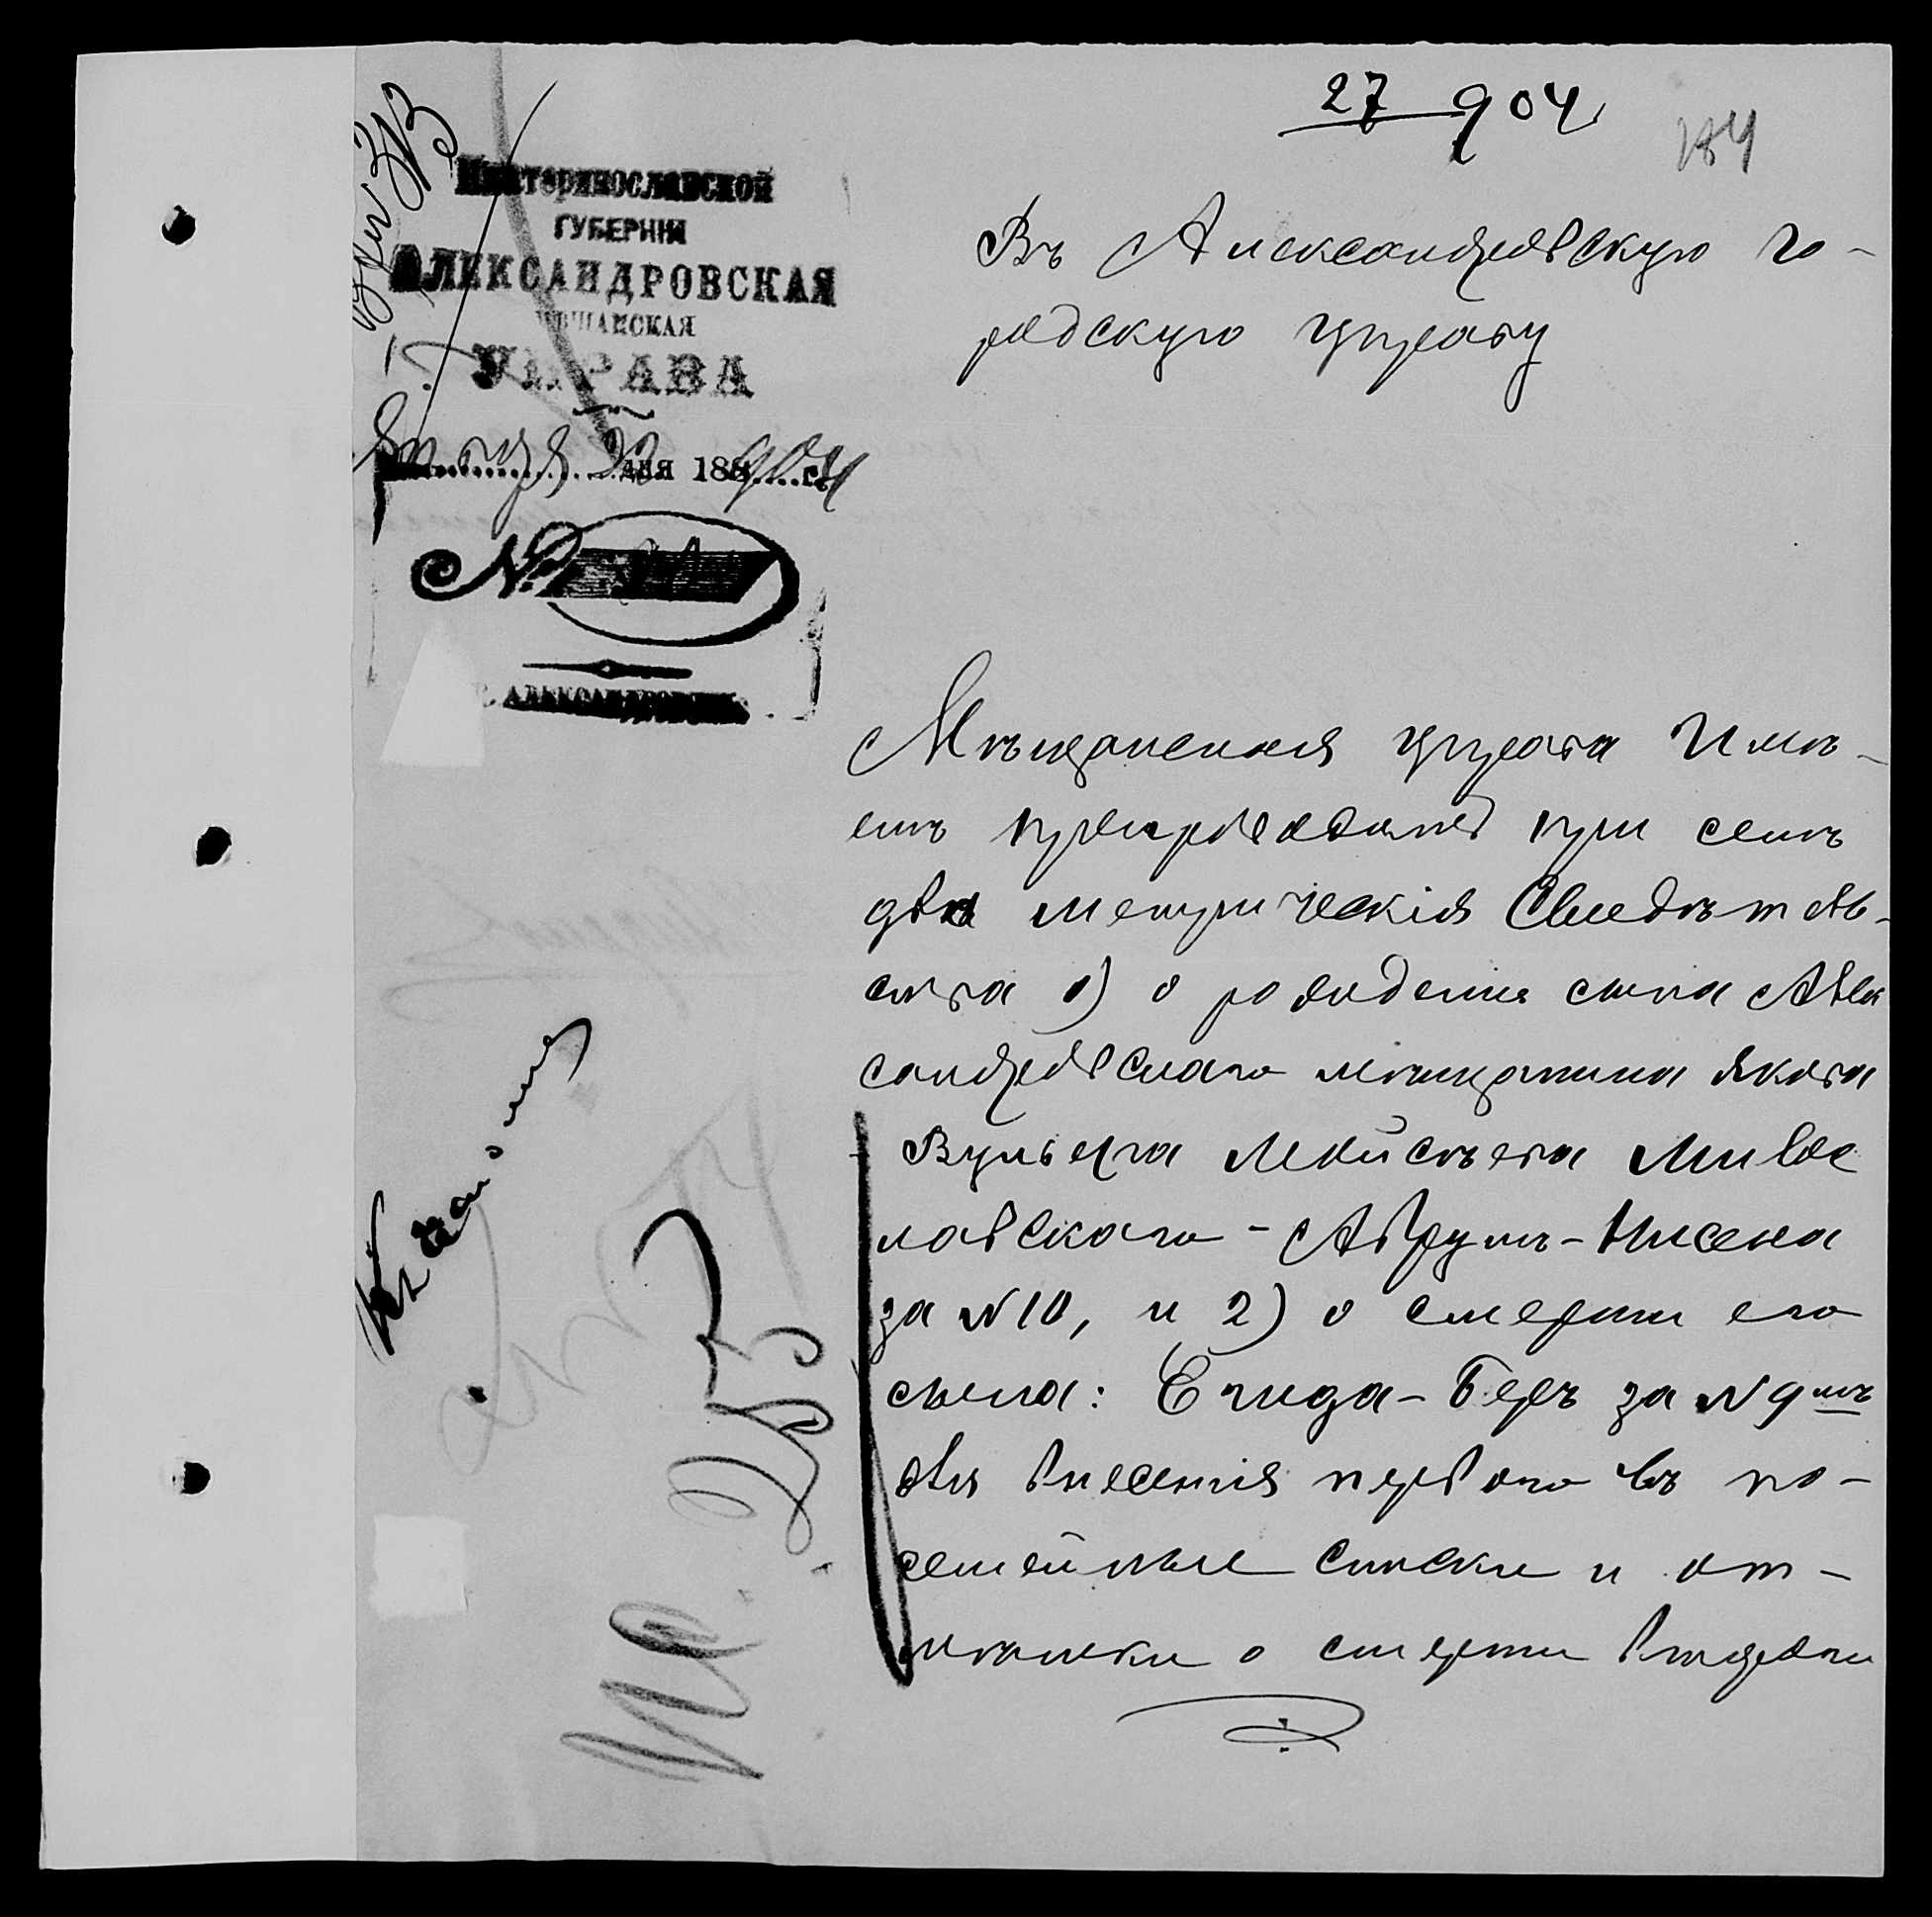 27 904
184
Екатеринославской
ГУБЕРНІИ
АЛЕКСАНДРОВСКАЯ
МѢЩАНСКАЯ
УПРАВА
Января 23 дня 188 904
№
Г. АЛЕКСАНДРОВСКЪ
Въ Александровскую го-
родскую управу
Мѣщанская управа Имѣ-
етъ препроводить при семъ
два метрическія Свидѣтель-
ства 1) о рожденіи сына Алек
сандровскаго мѣщанина Якова
Вульфа Мойсѣева Мило
лавскаго - Аврумъ-Нисена
за N 10, и 2) о смерти его
сына: Егида-Беръ за N 9мъ
для внесенія перваго въ по-
семейные списки и от-
мѣтки о смерти втораго
№ 253